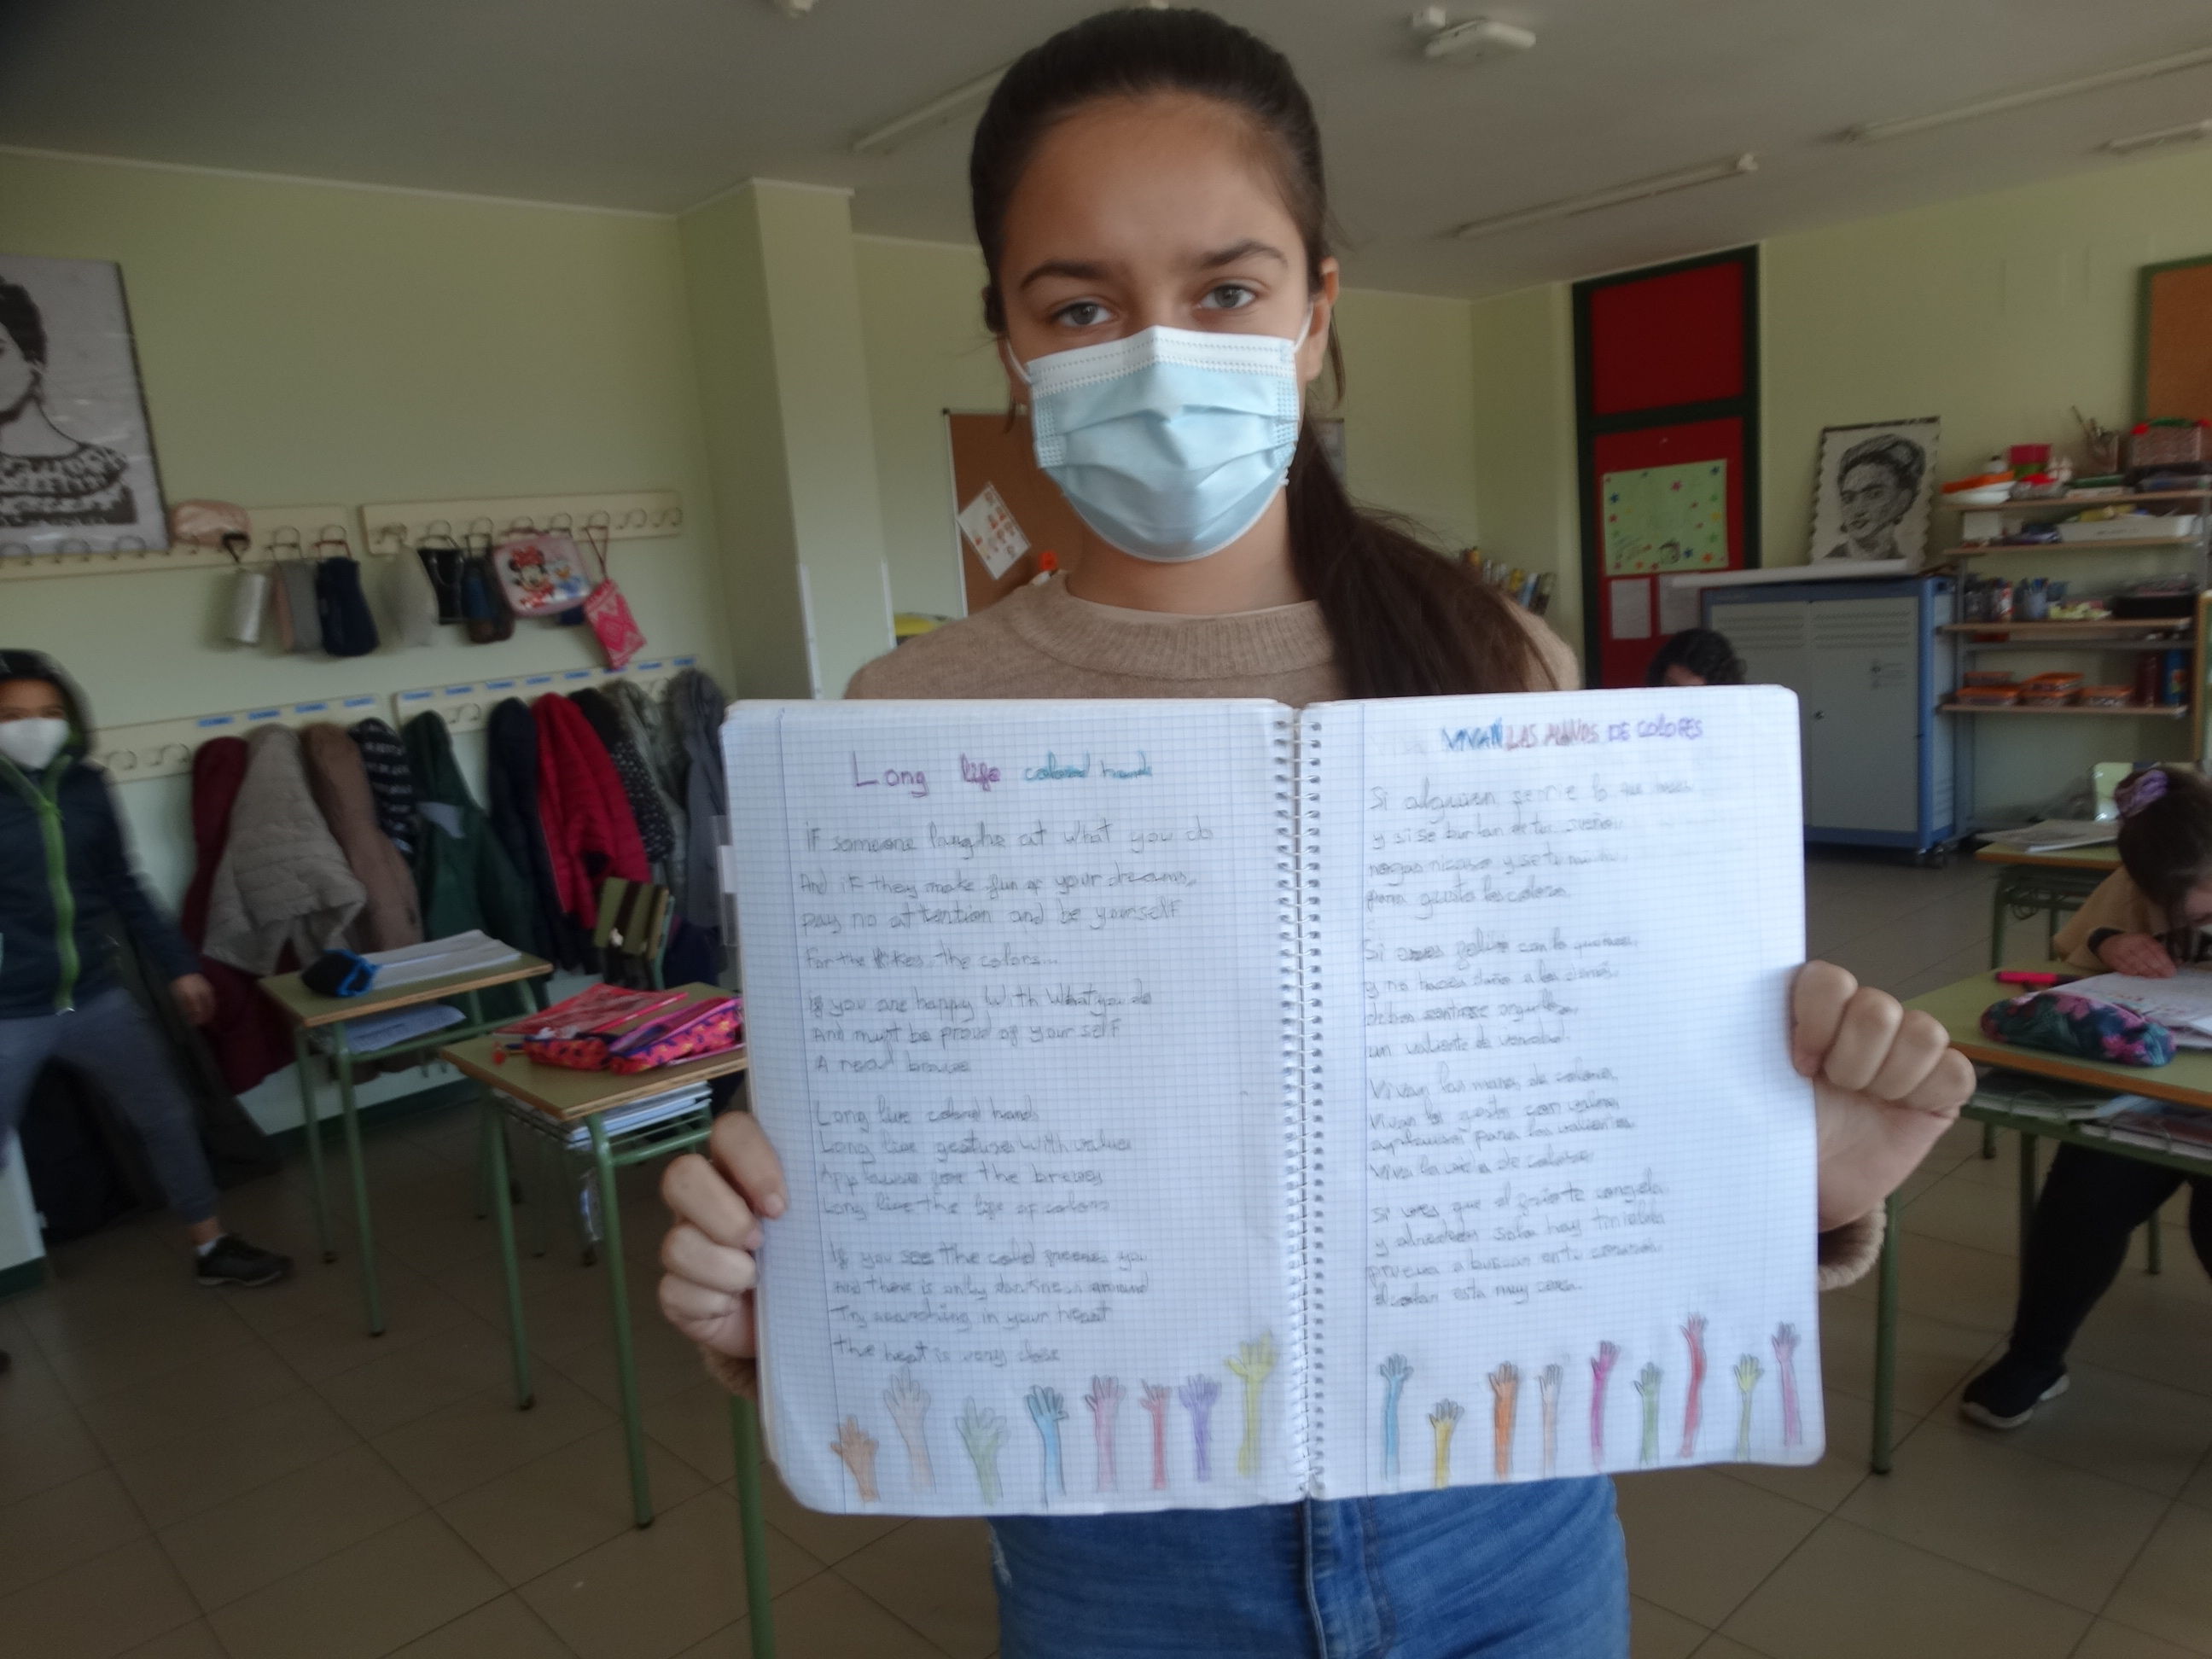 Long life colored hands
if someone laughs at what you do
And if they make fun of your dreams,
pay no attention and be yourself
For the likes, the colors...
if you are happy with what you do
And must be proud of your self
A real brave
Long live colored hands
Long live gestures with values
Applause for the braves
Long live the life of colors
If you see the cold freenes you
And there is only darkness around
Try searching in your heart
The heat is very close
VIVAN LAS MANOS DE COLORES
Si alguien se rie lo que haces
y si se burlan de tus sueños
hagas ni caso y se tu mismo
para gusto los colores
Si eres feliz con lo que
y no haces daño a los demás
debes sentirse orgulloso
un valiente de verdad.
Vivan las manos de colores
Vivan los gestos con valores
aplausos para los valientes
Viva la vida de colores
Si ves que el frio te congela
y alrededor solo hay tinieblas
prueva a buscar en tu corazon
el calor esta muy cerca.